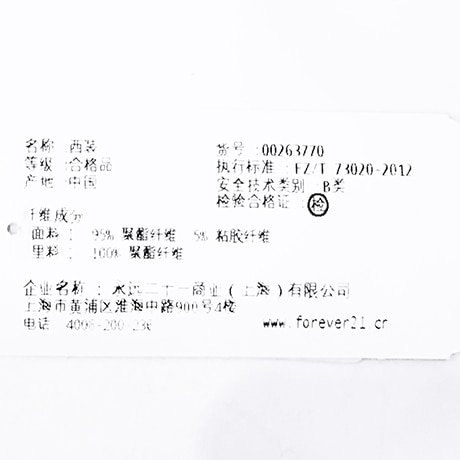 名称：西装 货号：00263770
等级：合格品 执行标准：FZ/T 73020-2012
产地：中国 安全技术类别 B类
检验合格证：检
纤维成分
面料： 95% 聚酯纤维 5% 粘胶纤维
里料： 100% 聚酯纤维
企业名称：永远二十一商业（上海）有限公司
上海市黄浦区淮海中路900号4楼
电话 www.forever21.cn